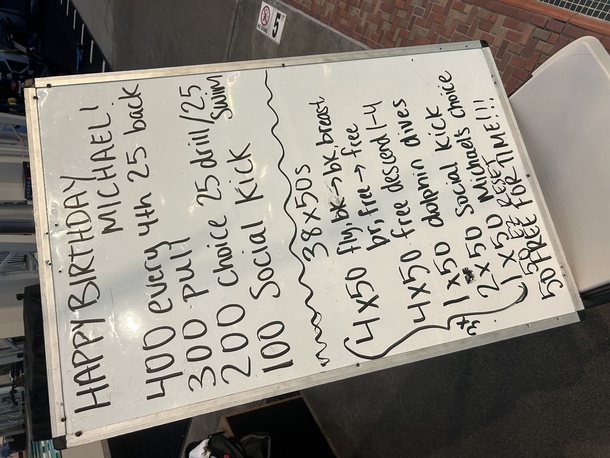 HAPPY BIRTHDAY
MICHAEL!
400 every 4th 25 back
300 pull
200 choice 25 drill/25
swim
100 Social Kick
38x50s
4x50 fly, bk → bk, breast
br, free → free
4x50 free descend 1-4
1x50 dolphin dives
3x
2x50 Social Kick
1x50 Michael's choice
50 EZ RESET
50 FREE FOR TIME!!!
5